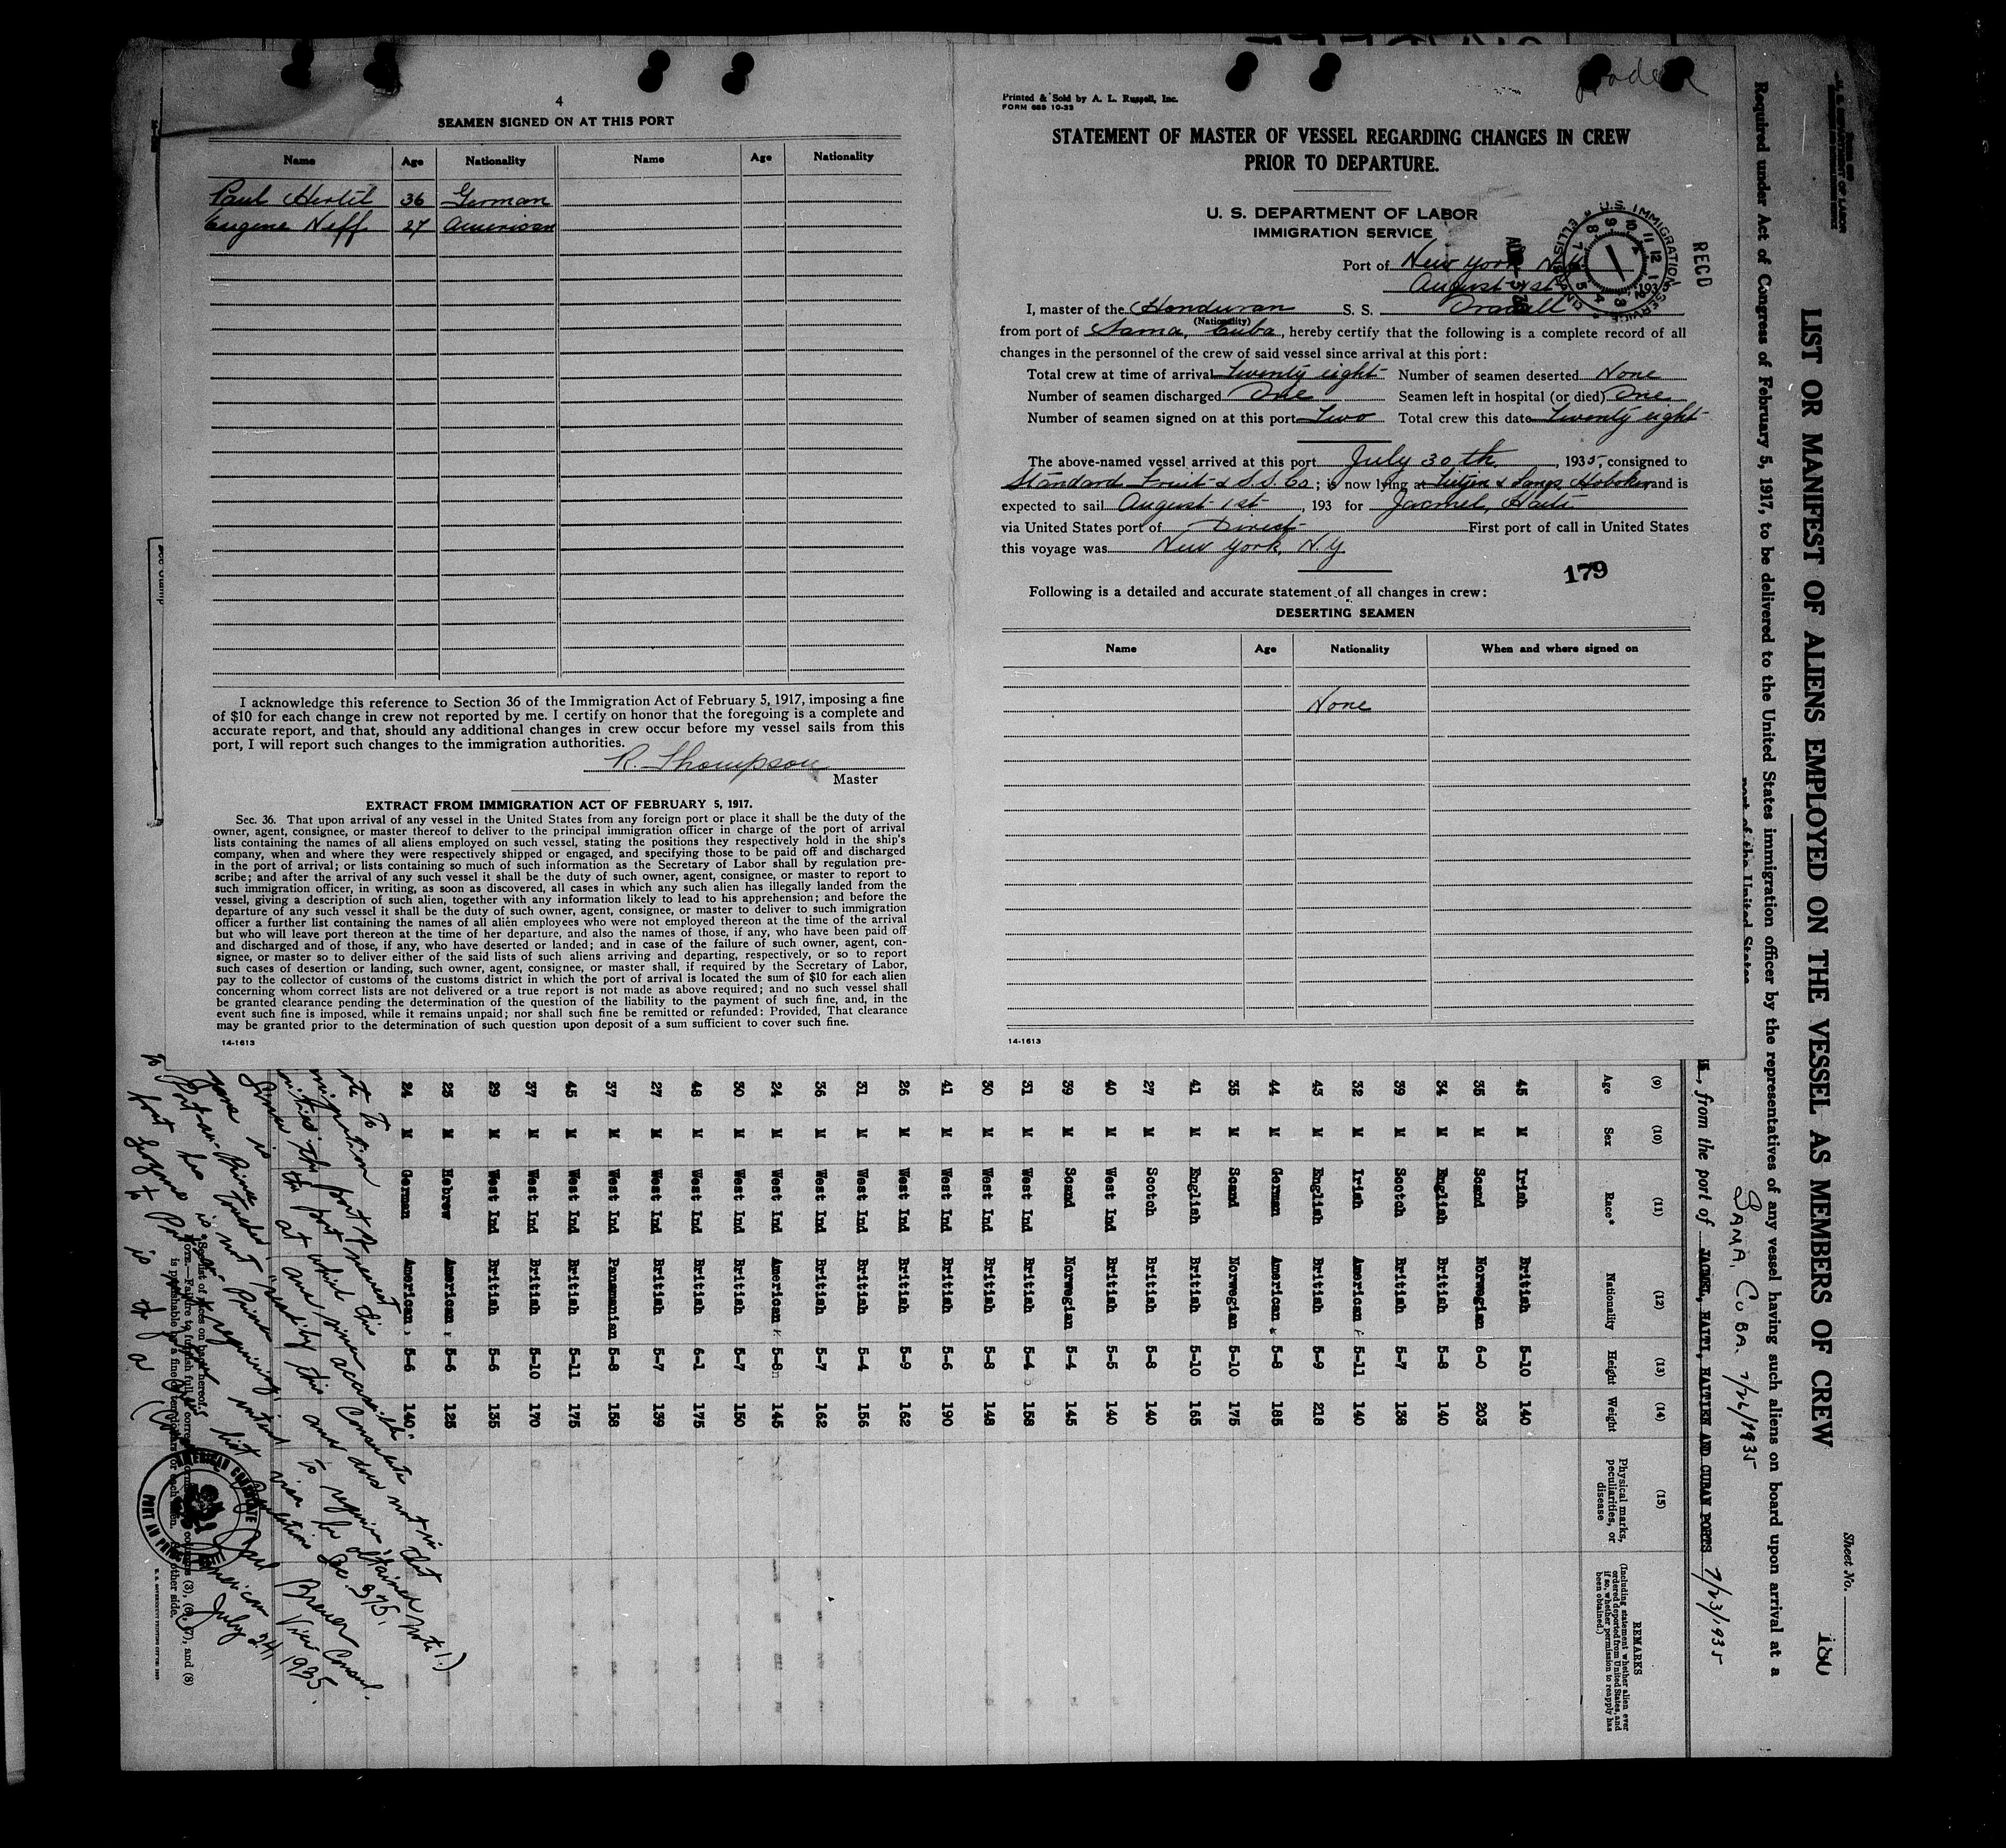 4
SEAMEN SIGNED ON AT THIS PORT
Name Age Nationality Name Age Nationality
Paul 36 German
Eugene Neff 27 American
I acknowledge this reference to Section 36 of the Immigration Act of February 5, 1917, imposing a fine
of $10 for each change in crew not reported by me. I certify on honor that the foregoing is a complete and
accurate report, and that, should any additional changes in crew occur before my vessel sails from this
port, I will report such changes to the immigration authorities.
R. Thompson
Master
EXTRACT FROM IMMIGRATION ACT OF FEBRUARY 5, 1917.
Sec. 36. That upon arrival of any vessel in the United States from any foreign port or place it shall be the duty of the
owner, agent, consignee, or master thereof to deliver to the principal immigration officer in charge of the port of arrival
lists containing the names of all aliens employed on such vessel, stating the positions they respectively hold in the ship's
company, when and where they were respectively shipped or engaged, and specifying those to be paid off and discharged
in the port of arrival; or lists containing so much of such information as the Secretary of Labor shall by regulation pre-
scribe; and after the arrival of any such vessel it shall be the duty of such owner, agent, consignee, or master to report to
such immigration officer, in writing, as soon as discovered, all cases in which any such alien has illegally landed from the
vessel, giving a description of such alien, together with any information likely to lead to his apprehension; and before the
departure of any such vessel it shall be the duty of such owner, agent, consignee, or master to deliver to such immigration
officer a further list containing the names of all alien employees who were not employed thereon at the time of the arrival
but who will leave port thereon at the time of her departure, and also the names of those, if any, who have been paid off
and discharged and of those, if any, who have deserted or landed; and in case of the failure of such owner, agent, con-
signee, or master so to deliver either of the said lists of such aliens arriving and departing, respectively, or so to report
such cases of desertion or landing, such owner, agent, consignee, or master shall, if required by the Secretary of Labor,
pay to the collector of customs of the customs district in which the port of arrival is located the sum of $10 for each alien
concerning whom correct lists are not delivered or a true report is not made as above required; and no such vessel shall
be granted clearance pending the determination of the question of the liability to the payment of such fine, and, in the
event such fine is imposed, while it remains unpaid; nor shall such fine be remitted or refunded: Provided, That clearance
may be granted prior to the determination of such question upon deposit of a sum sufficient to cover such fine.
14-1613
Printed & Sold by A. L. Russell, Inc.
FORM 689 10-33
STATEMENT OF MASTER OF VESSEL REGARDING CHANGES IN CREW
PRIOR TO DEPARTURE.
U. S. DEPARTMENT OF LABOR
IMMIGRATION SERVICE
U.S. IMMIGRATION SERVICE
RECD
Port of New York N.Y.
August 1st 193
I, master of the Honduran S. S.
(Nationality)
from port of Sama, Cuba, hereby certify that the following is a complete record of all
changes in the personnel of the crew of said vessel since arrival at this port:
Total crew at time of arrival Twenty eight Number of seamen deserted None
Number of seamen discharged One Seamen left in hospital (or died) One
Number of seamen signed on at this port Two Total crew this date Twenty eight
The above-named vessel arrived at this port July 30th, 1935, consigned to
Standard Fruit & S.S. Co; is now lying at Hoboken and is
expected to sail August 1st, 193 for Jacmel, Haiti
via United States port of Direct First port of call in United States
this voyage was New York, N.Y.
179
Following is a detailed and accurate statement of all changes in crew:
DESERTING SEAMEN
Name Age Nationality When and where signed on
None
14-1613
Sheet No. 180
LIST OR MANIFEST OF ALIENS EMPLOYED ON THE VESSEL AS MEMBERS OF CREW
Required under Act of Congress of February 5, 1917, to be delivered to the United States immigration officer by the representatives of any vessel having such aliens on board upon arrival at a
port of the United States
SAMA, CUBA. 7/26/1935
, from the port of JACMEL, HAITI, HAITIEN AND CUBAN PORTS 7/23/1935
(9) (10) (11) (12) (13) (14) (15)
Age Sex Race* Nationality Height Weight Physical marks, peculiarities, or disease REMARKS
(Including statement whether alien ever ordered deported from United States, and if so, whether permission to reapply has been obtained.)
45 M Irish British 5-10 140
35 M Scand Norwegian 6-0 203
34 M English British 5-8 140
39 M Scotch British 5-7 138
32 M Irish American 5-11 140
43 M English British 5-9 218
44 M German American 5-8 185
35 M Scand Norwegian 5-10 175
41 M English British 5-10 165
27 M Scotch British 5-8 140
40 M West Ind British 5-5 140
39 M Scand Norwegian 5-4 145
31 M West Ind British 5-4 158
30 M West Ind British 5-8 148
41 M West Ind British 5-6 190
26 M West Ind British 5-9 162
31 M West Ind British 5-4 156
36 M West Ind British 5-7 162
24 M West Ind American 5-8 145
30 M West Ind British 5-7 150
48 M West Ind British 6-1 175
27 M West Ind British 5-7 139
37 M West Ind Panamanian 5-8 158
45 M West Ind British 5-11 175
37 M West Ind British 5-10 170
29 M West Ind British 5-6 135
23 M Hebrew American 5-6 125
24 M German American 5-6 140
AMERICAN CONSULATE
PORT AU PRINCE
Vice Consul.
July 24, 1935.